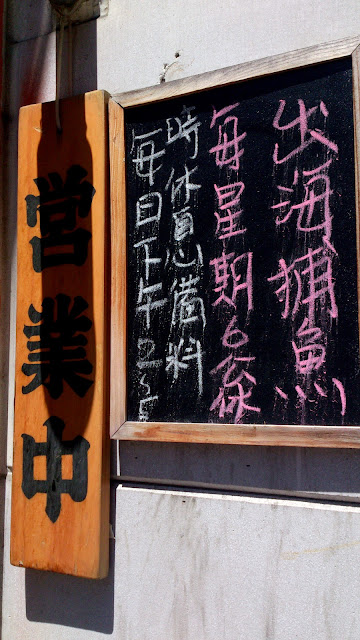 営業中
每日下午2~5
時休息備料
每星期6公休
出海捕魚